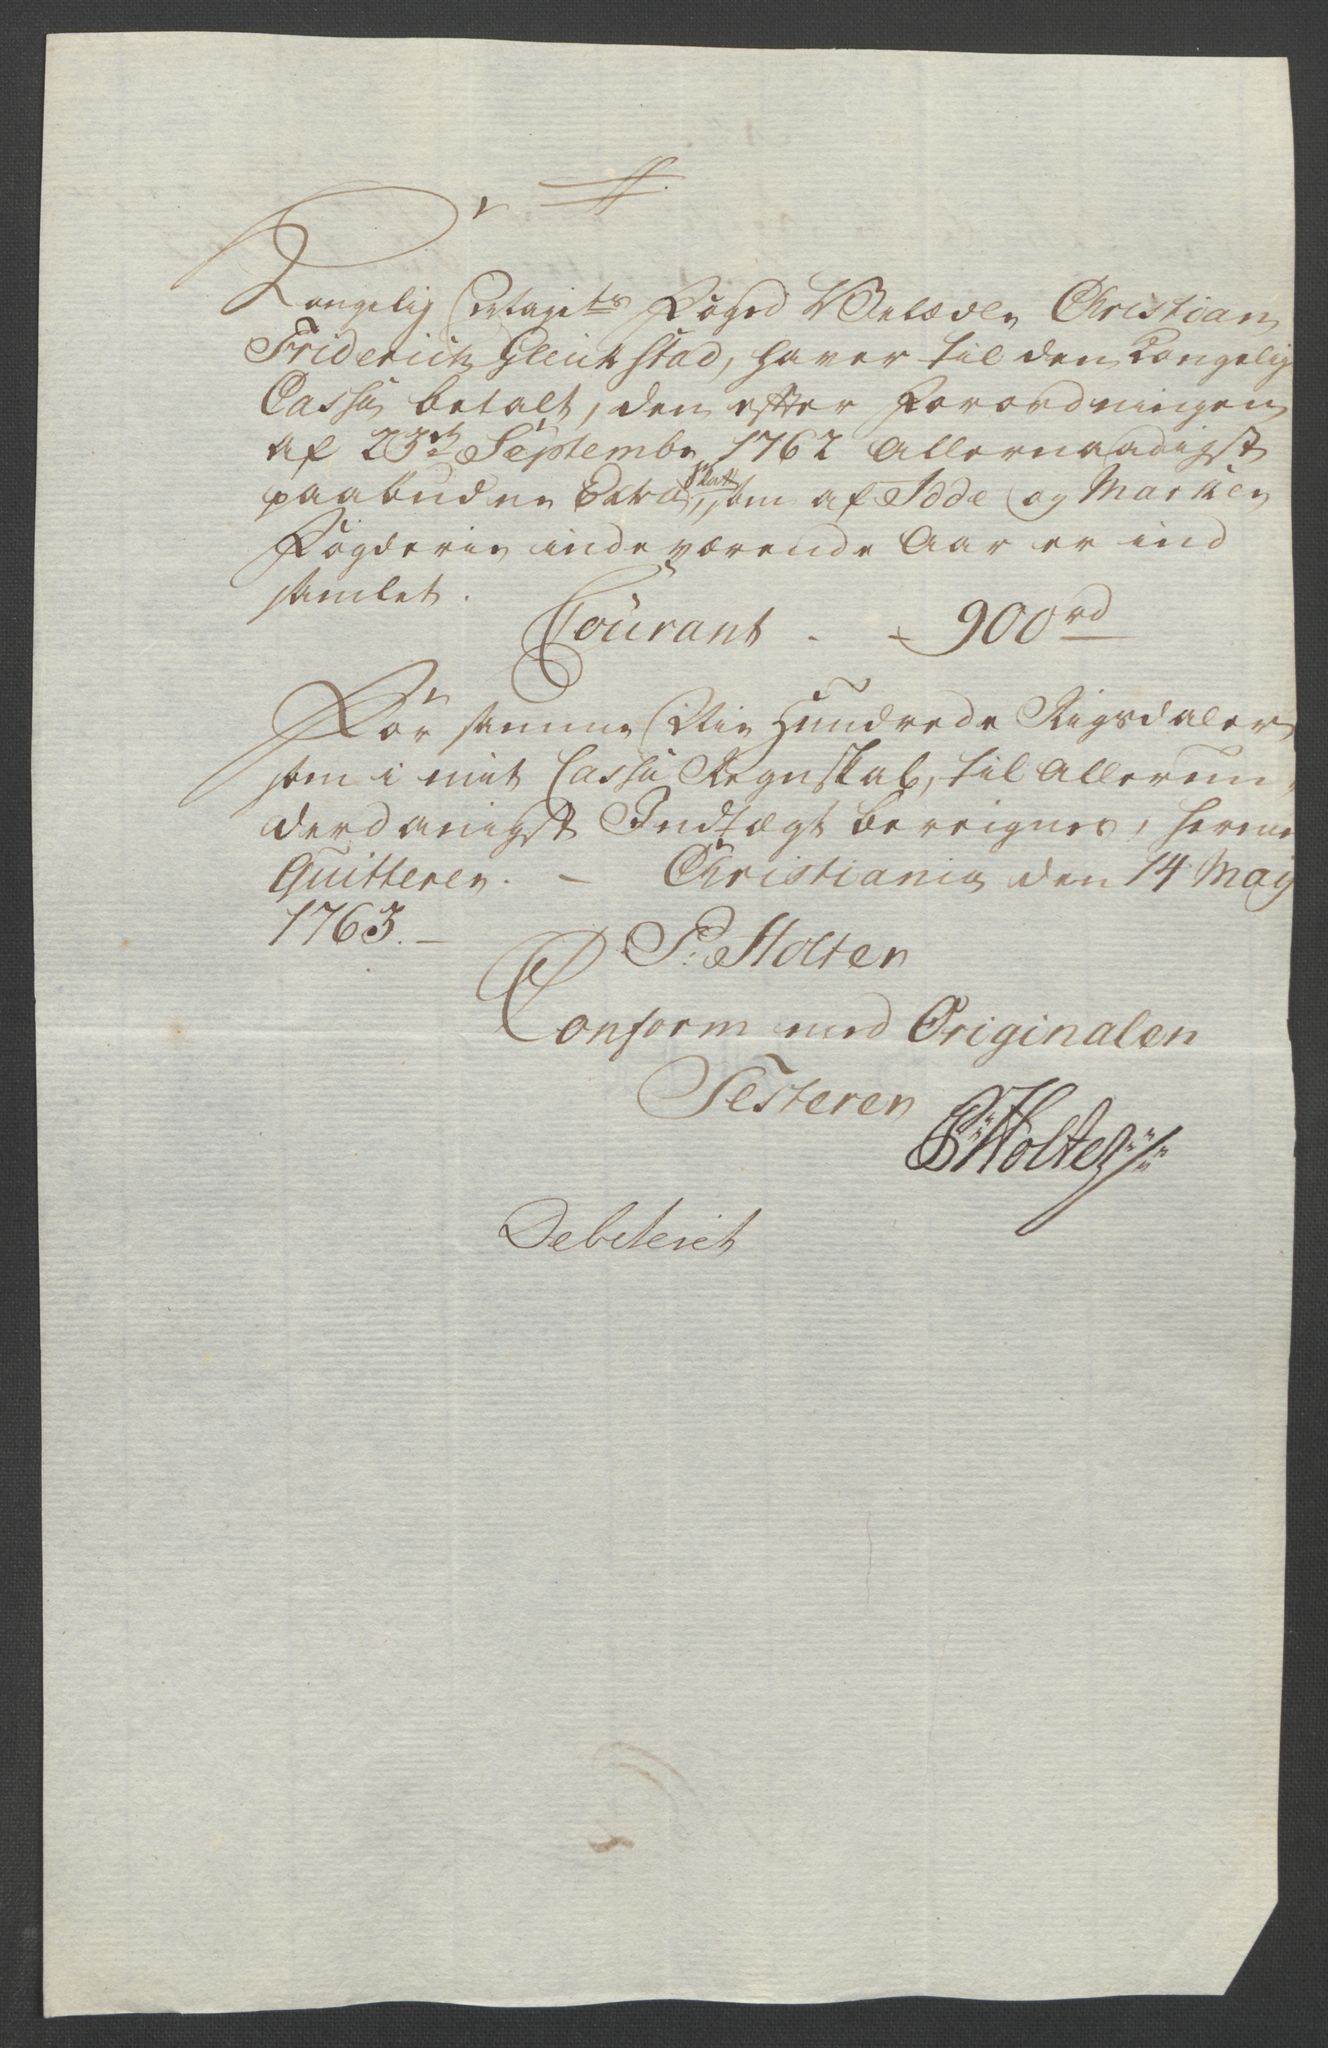 Kongelig Mayts Foged Velædle Christian
Friderich Glückstad, haver til den Kongelig
Cassa betalt, den efter Forordningen
af 23de Septembr 1762 Allernaadigst
paabudne Extra Skatt, som af Idde og Marker
Fogderie indeværende Aar er ind
samlet.
Courant - - 900 rd
For samme Nie Hundrede Rigsdaler
som i mit Cassa Regnskab, til Allerun-
derdanigst Indtægt bereignes, herved
Quitteres. - Christiania den 14 May
1763. -
P: Holter
Conform med Originalen
Testerer
P: Holter
Debiteret